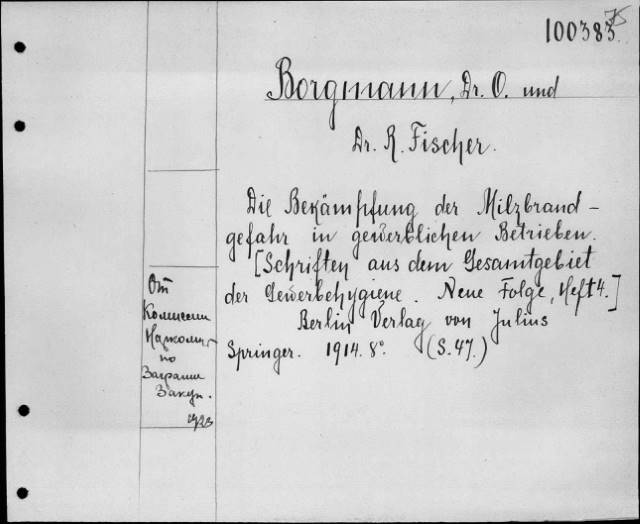 100383
75
Borgmann, Dr. O. und
Dr. R. Fischer.
Die Bekämpfung der Milzbrand-
gefahr in gewerblichen Betrieben.
[Schriften aus dem Gesamtgebiet
der Gewerbehygiene. Neue Folge, Heft 4.]
Berlin Verlag von Julius
Springer. 1914. 8°. (S. 47.)
От
Комиссии
по
Загранич
Закуп.